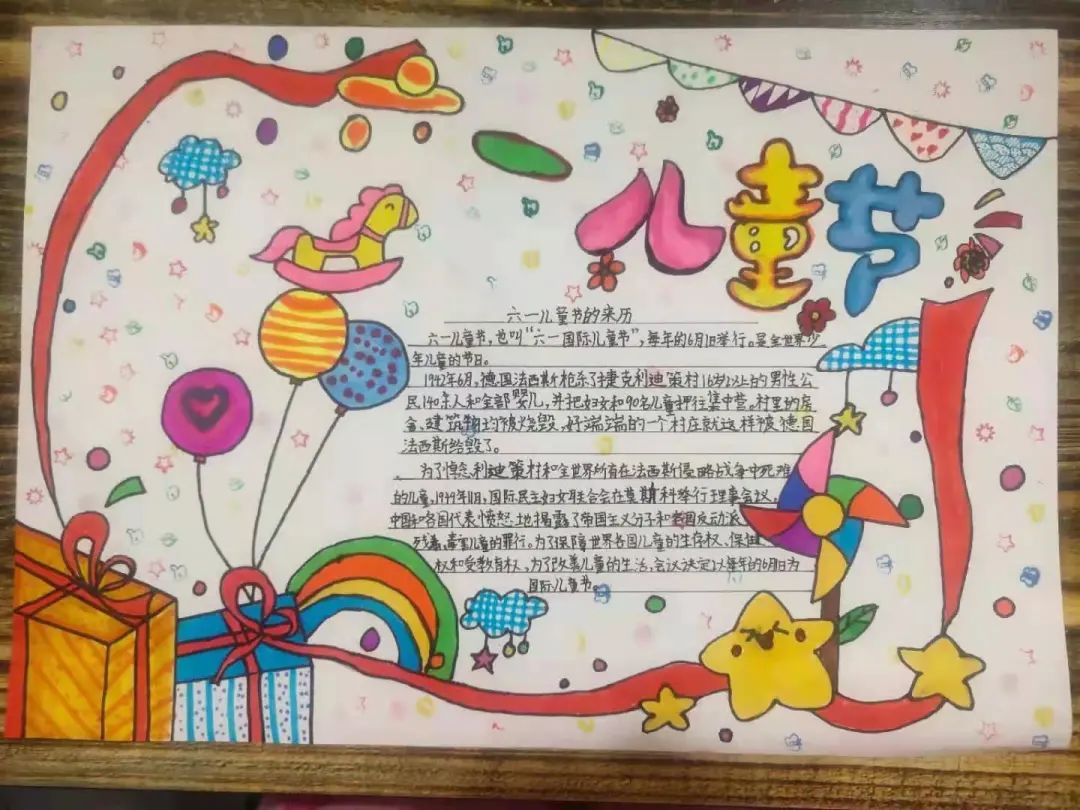 儿童节
六一儿童节的来历
六一儿童节,也叫“六一国际儿童节”,每年的6月1日举行。是全世界少
年儿童的节日。
1942年6月,德国法西斯枪杀了捷克利迪策村16岁以上的男性公
民140余人和全部婴儿,并把妇女和90名儿童押往集中营。村里的房
舍、建筑物均被烧毁,好端端的一个村庄就这样被德国
法西斯给毁了。
为了悼念利迪策村和全世界所有在法西斯侵略战争中死难
的儿童,1949年11月,国际民主妇女联合会在莫斯科举行理事会议,
中国和各国代表愤怒地揭露了帝国主义分子和各国反动派
残害、毒害儿童的罪行。为了保障世界各国儿童的生存权、保健
权和受教育权,为了改善儿童的生活,会议决定以每年的6月1日为
国际儿童节。